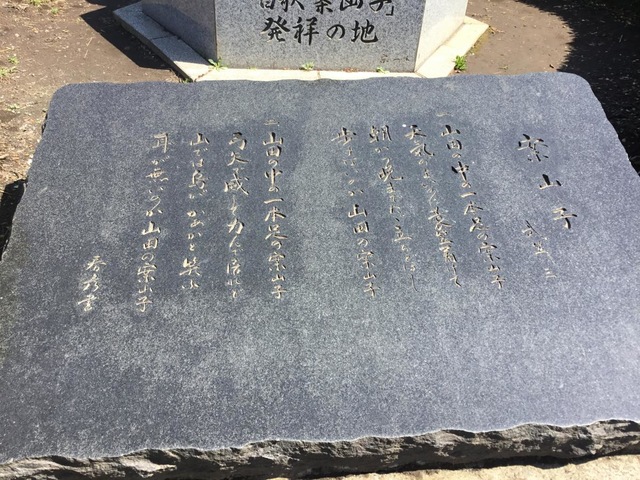 唱歴「案山子」
発祥の地
案山子
武笠 三
一 山田の中の一本足の案山子
天気のよいのに蓑笠着けて
朝から晩までただ立ちどほし
歩けないのか山田の案山子
二 山田の中の一本足の案山子
弓矢で威して力んで居れど
山では烏がかあかと笑ふ
耳が無いのか山田の案山子
春彦書